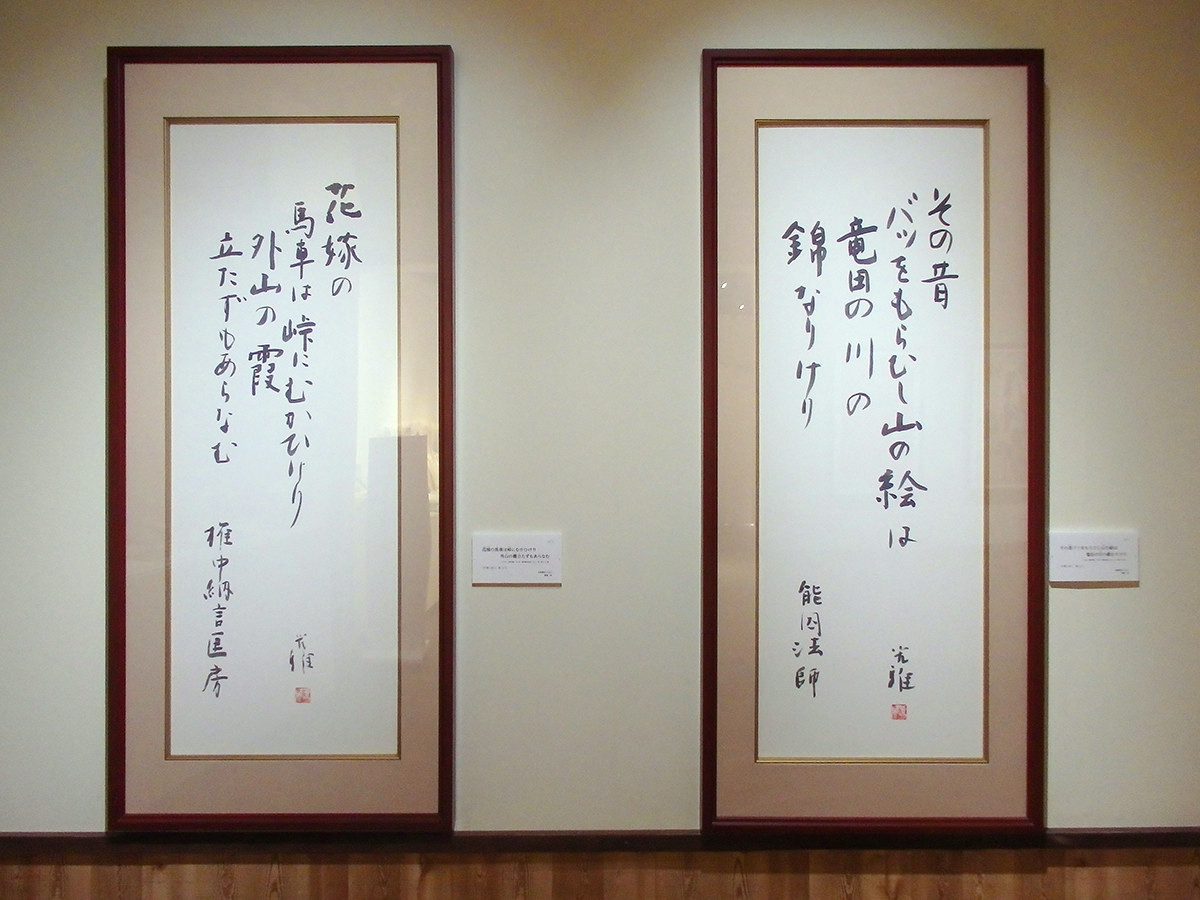 その昔
バツをもらひし山の絵は
竜田の川の
錦なりけり
能因法師
光雅
花嫁の
馬車は峠にむかひけり
外山の霞
立たずもあらなむ
権中納言匡房
光雅